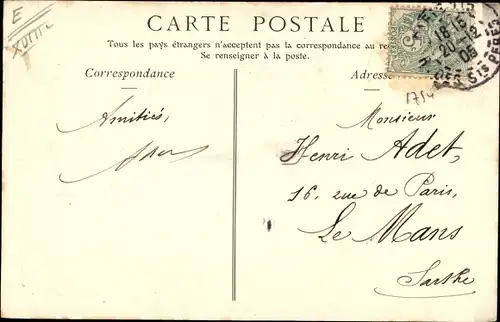 E
XVIII
CARTE POSTALE
Tous les pays étrangers n'acceptent pas la correspondance au
Se renseigner à la poste.
Correspondance
Adresse
18 15
20 - 12
DES Sts PERES
1754
Amitiés,
Monsieur
Henri Adet,
16, rue de Paris,
Le Mans
Sarthe